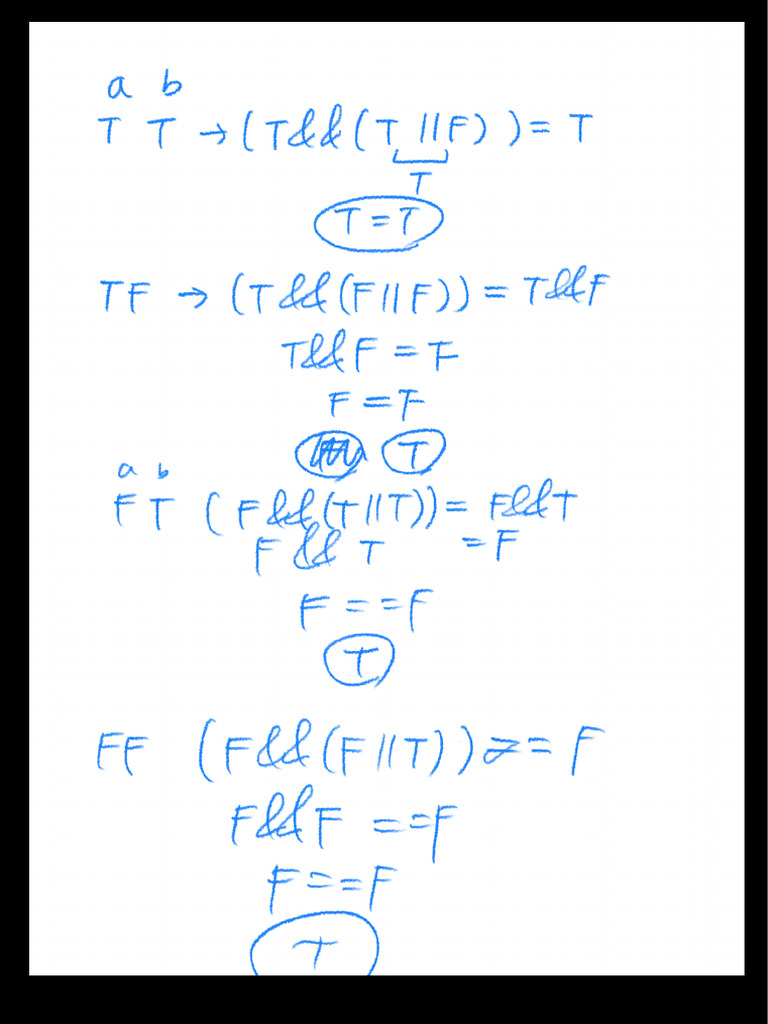 a b
T T → (T&&(T ||F) ) = T
T
T = T
TF → (T&&(F||F)) = T&&F
T&&F = F
F = F
T
a b
F T (F&&(T||T)) = F&&T
F && T = F
F == F
T
FF (F&&(F||T)) == F
F&&F == F
F == F
T